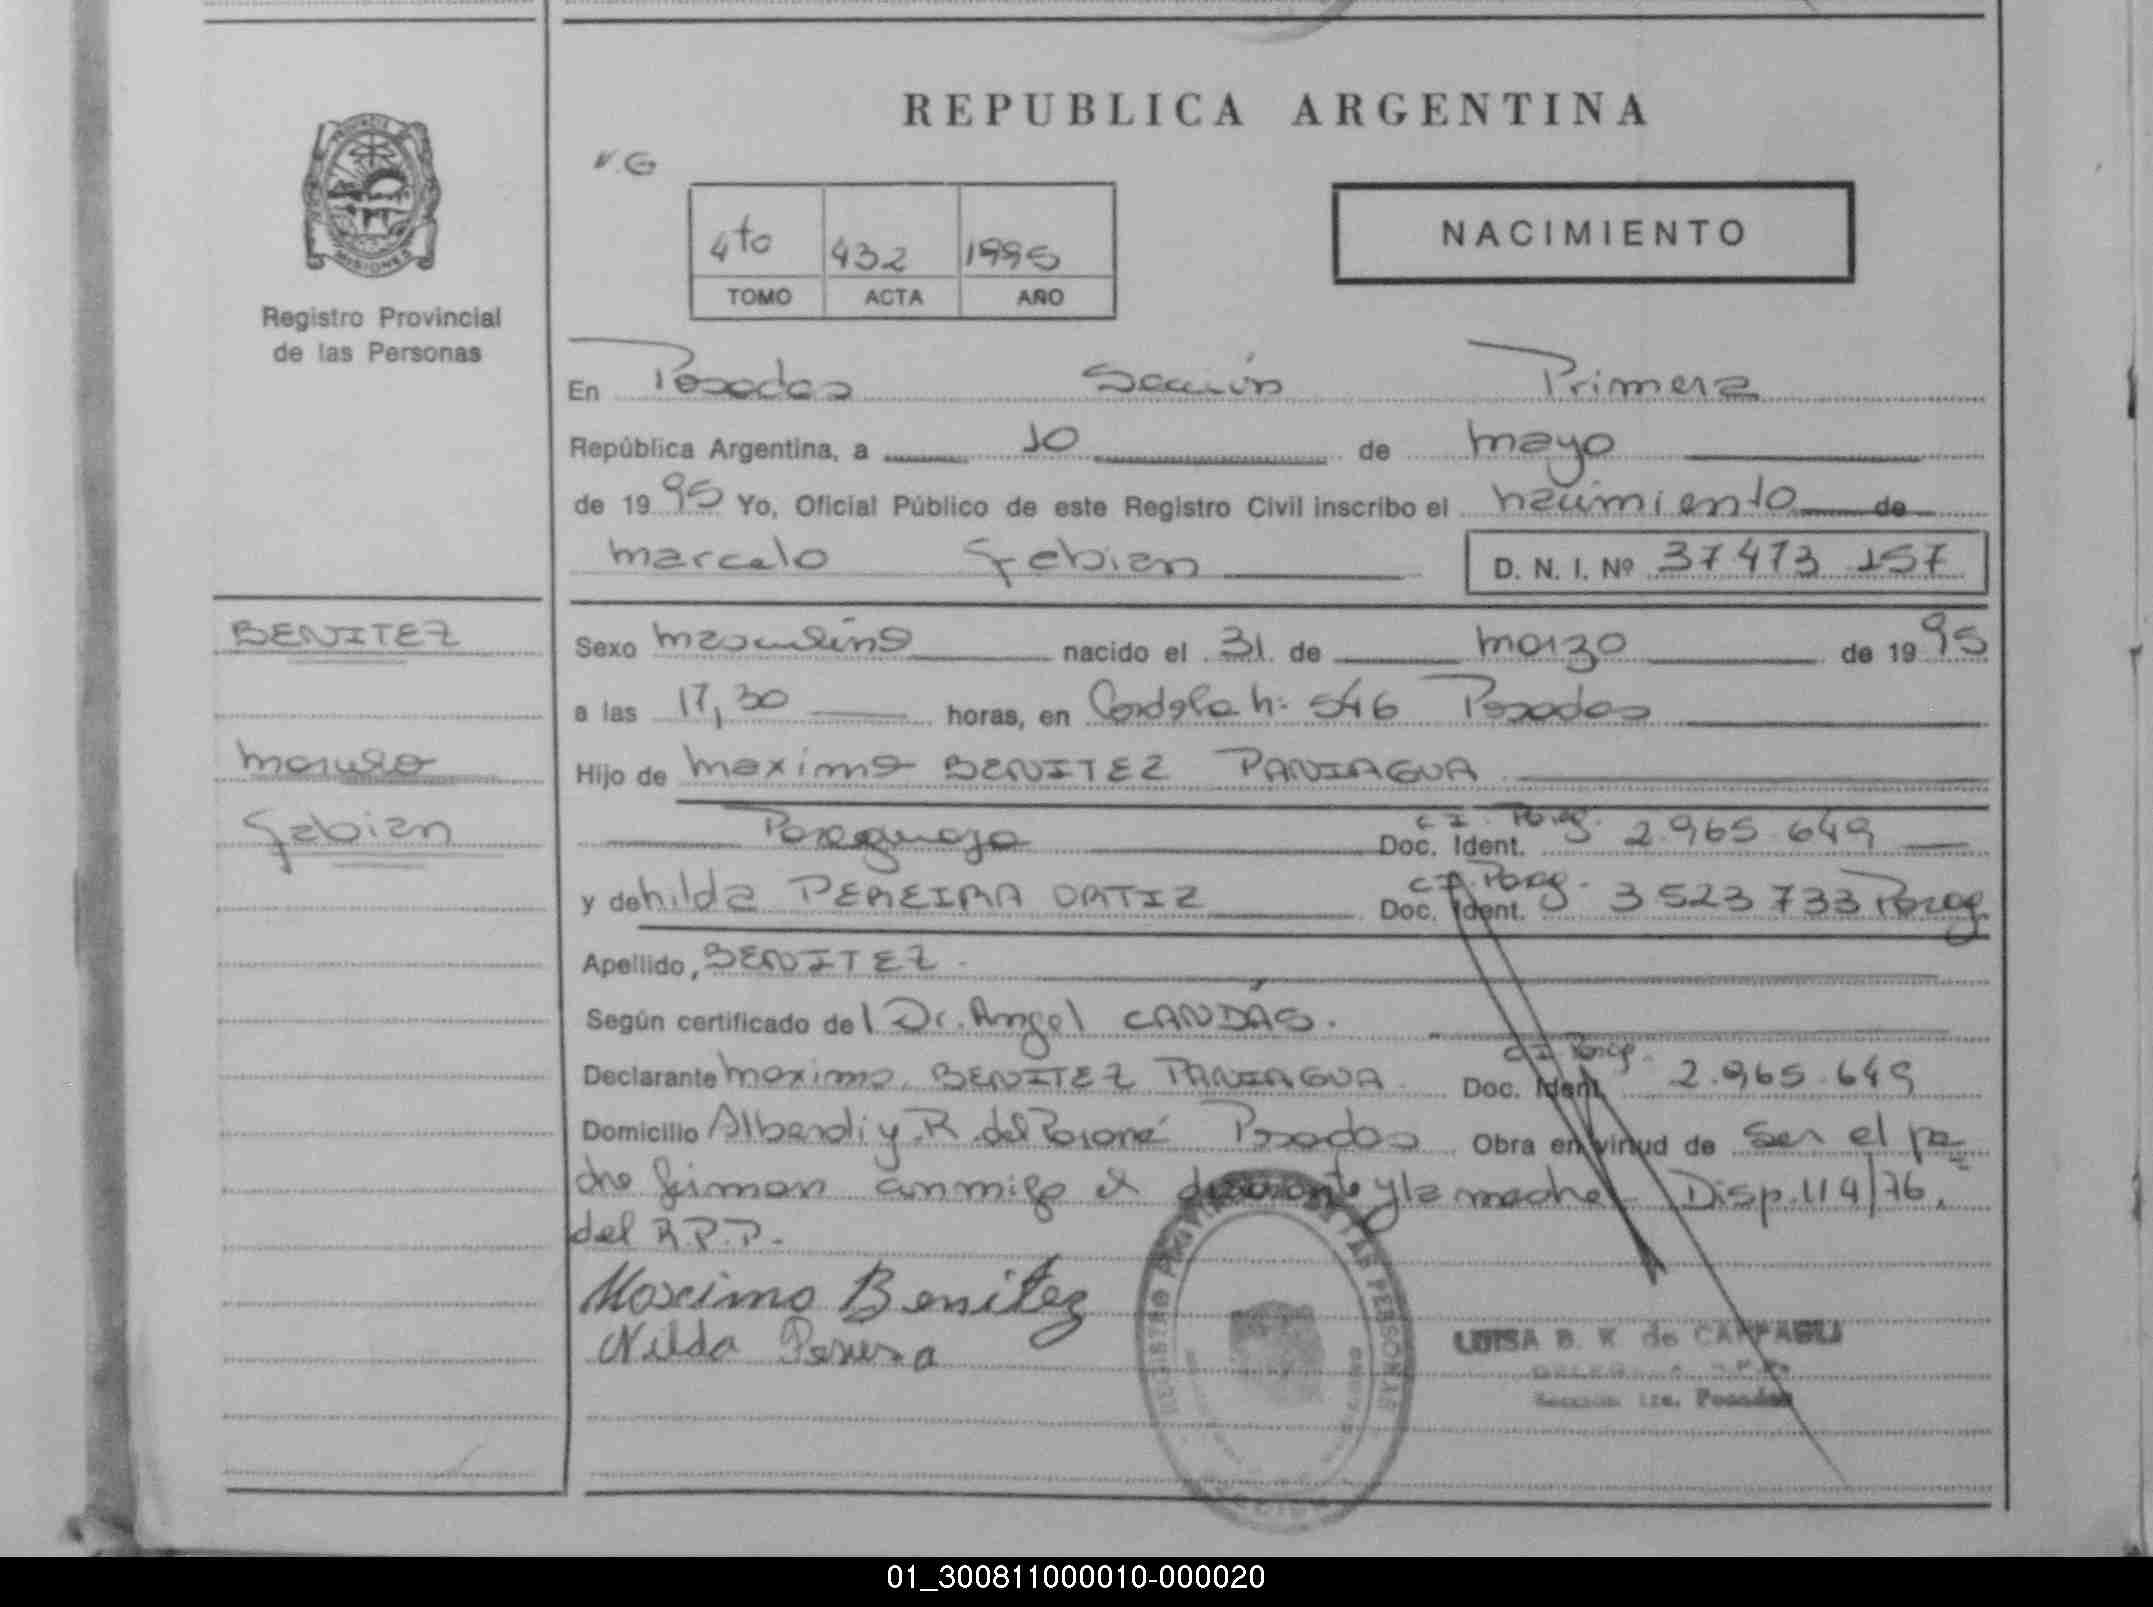 REPUBLICA ARGENTINA
V.G
4to 432 1995
TOMO ACTA AÑO
NACIMIENTO
MISIONES
Registro Provincial
de las Personas
En Posadas Sección Primera
República Argentina, a 10 de mayo
de 1995 Yo, Oficial Público de este Registro Civil inscribo el nacimiento de
marcelo Fabian D. N. I. Nº 37473 157
BENITEZ
marcelo
Fabian
Sexo masculino nacido el 31 de marzo de 1995
a las 17,30 horas, en 546 Posadas
Hijo de maximo BENITEZ PANIAGUA
Paraguayo C I. Parag. Doc. Ident. 2.965.649
y de nilda PEREIRA ORTIZ C.I. Parag. Doc. Ident. 3 523 733 Parag.
Apellido, BENITEZ.
Según certificado del Dr. Angel CANDÁS.
Declarante maximo BENITEZ PANIAGUA. C.I. Parag. Doc. Ident. 2.965.649
Domicilio Alberdi y R. del Posadas Obra en virtud de ser el pa-
dre firman conmigo el declarante y la madre. Disp. 114/76.
del R.P.P.
Maximo Benitez
Nilda Pereira
REGISTRO PROVINCIAL DE LAS PERSONAS
LUISA B. K. de CAPPAGLI
Sección 1ra. Posadas
01_300811000010-000020